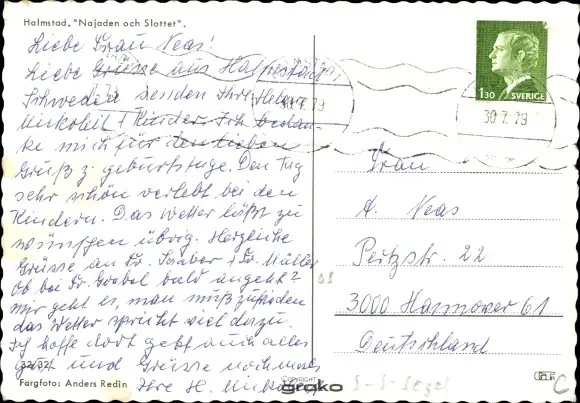 Halmstad, "Najaden och Slottet".
Liebe Frau Neas!
Liebe Grüsse aus Halmstad
Schweden senden Ihre Helene
Kinder. Ich bedan-
ke mich für den lieben
Gruß z. Geburtstage. Den Tag
sehr schön verlebt bei den
Kindern. Das Wetter läßt zu
wünschen übrig. Herzliche
Grüsse an Fr. Fr. Müller
Ob bei Fr. Goebel bald angeht?
Mir geht es, man muß zufrieden
das Wetter spricht viel dazu.
Ich hoffe dort geht auch alles
gut und Grüsse nochmals
Ihre H.
Fargfoto: Anders Redin
COPYRIGHT
grako
1.30 SVERIGE
30.7.79
30.7.79
Frau
A. Neas
Peitzstr. 22
3000 Hannover 61
Deutschland